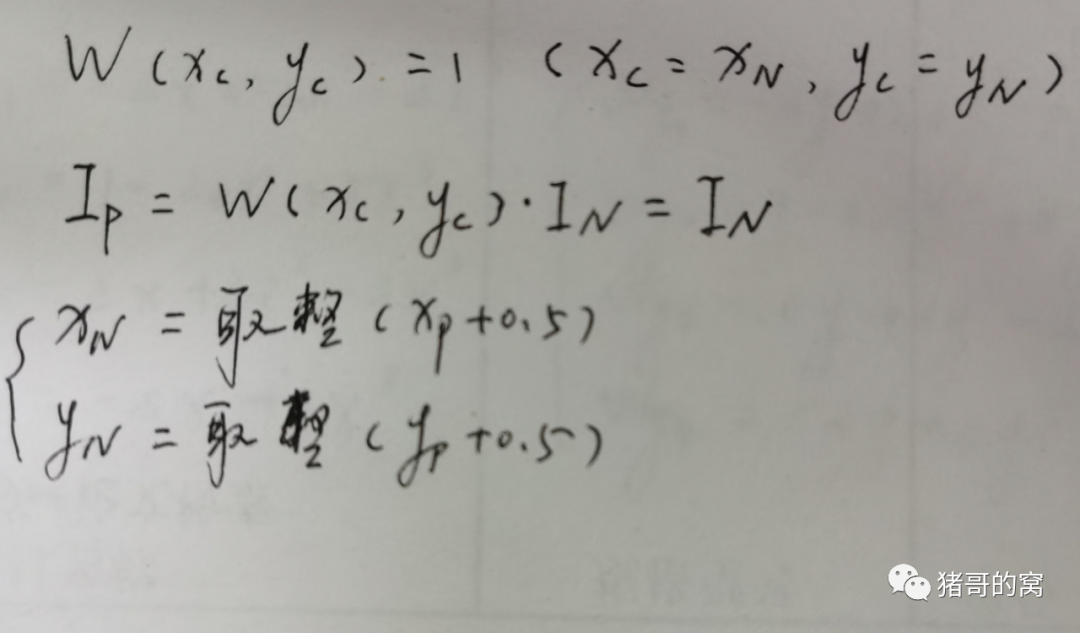 W(x_c, y_c) = 1 (x_c = x_N, y_c = y_N)
I_p = W(x_c, y_c)·I_N = I_N
x_N = 取整(x_p+0.5)
y_N = 取整(y_p+0.5)
猪哥的窝